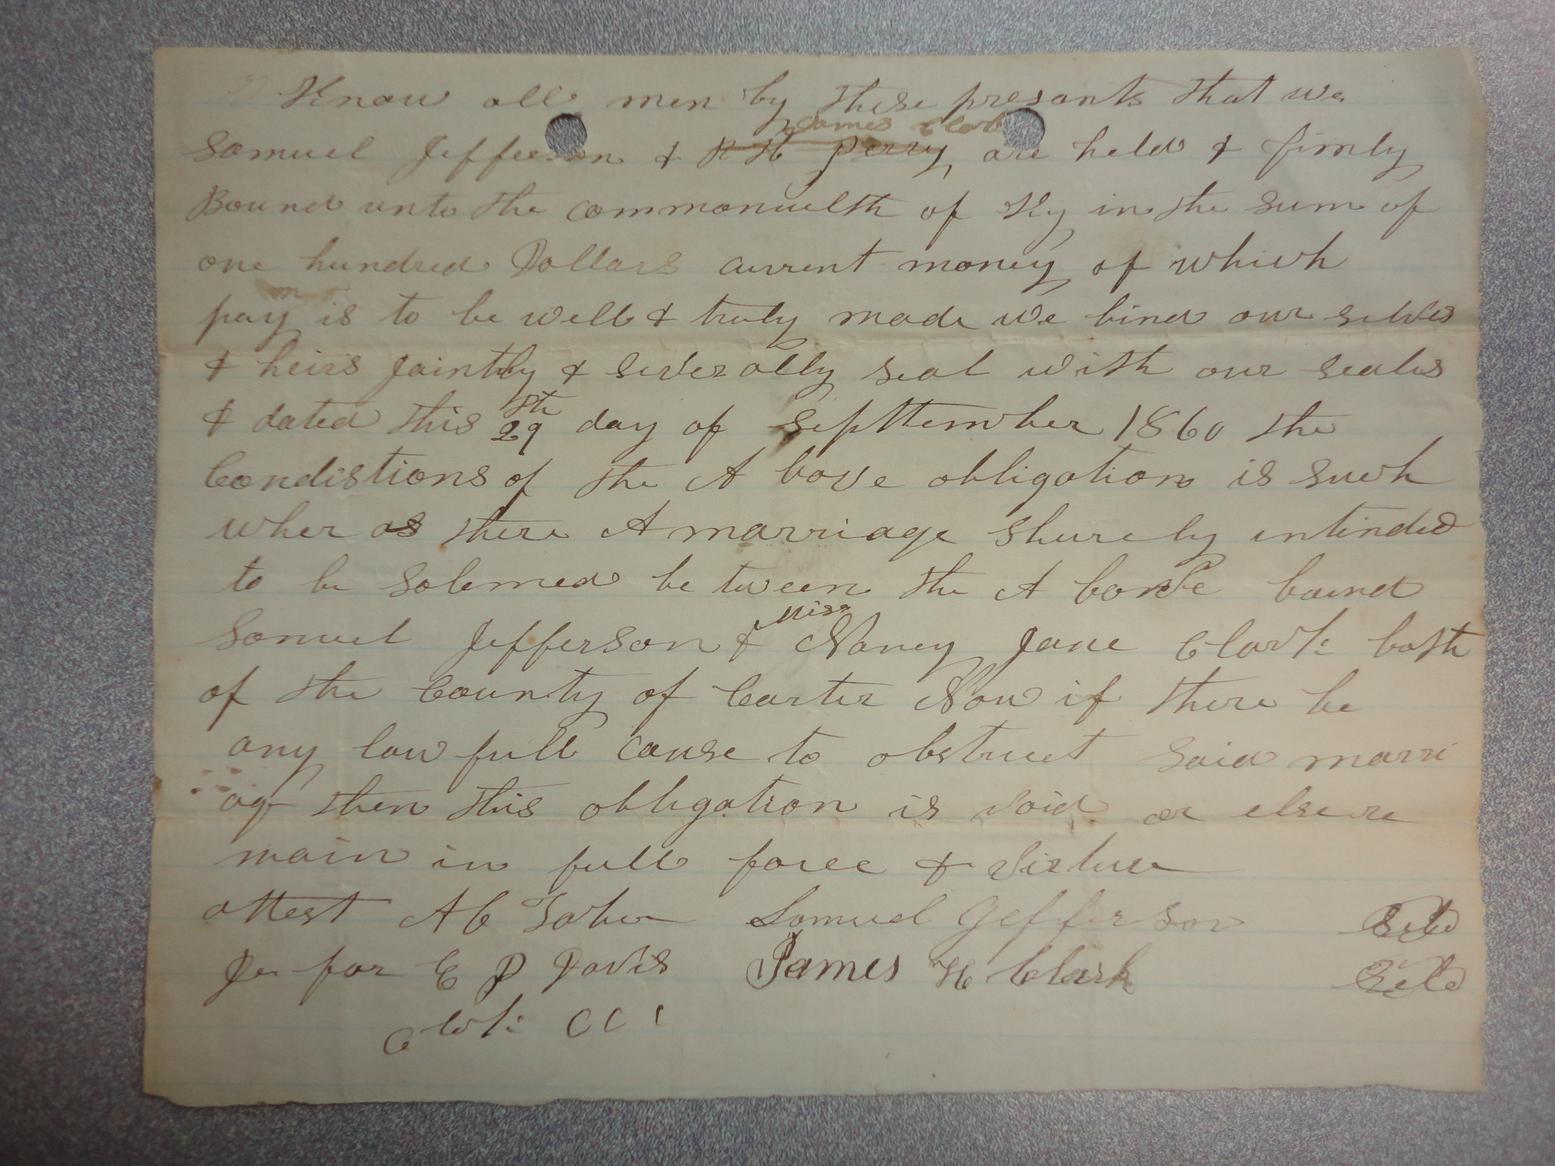 Know all men by these presants that we
James Clark
Samuel Jefferson & R H Perry, are held & firmly
Bound unto the commonwelth of Ky in the sum of
one hundred Dollars current money of which
pay is to be well & truly made we bind our selves
& heirs Jaintly & severally seal with our seales
& dated this 29th day of Septtember 1860 the
Condistions of the A bove obligation is such
wher as there A marriage shurely intended
to be solemed be tween the A bove bound
Miss
Samuel Jefferson & Nancy Jane Clark both
of the County of Carter Now if there be
any law full cause to obstruct said marri
ag then this obligation is void or else re
main in full force & virtue
attest A C Samuel Jefferson
for E D Davis James H Clark
Clerk CCC